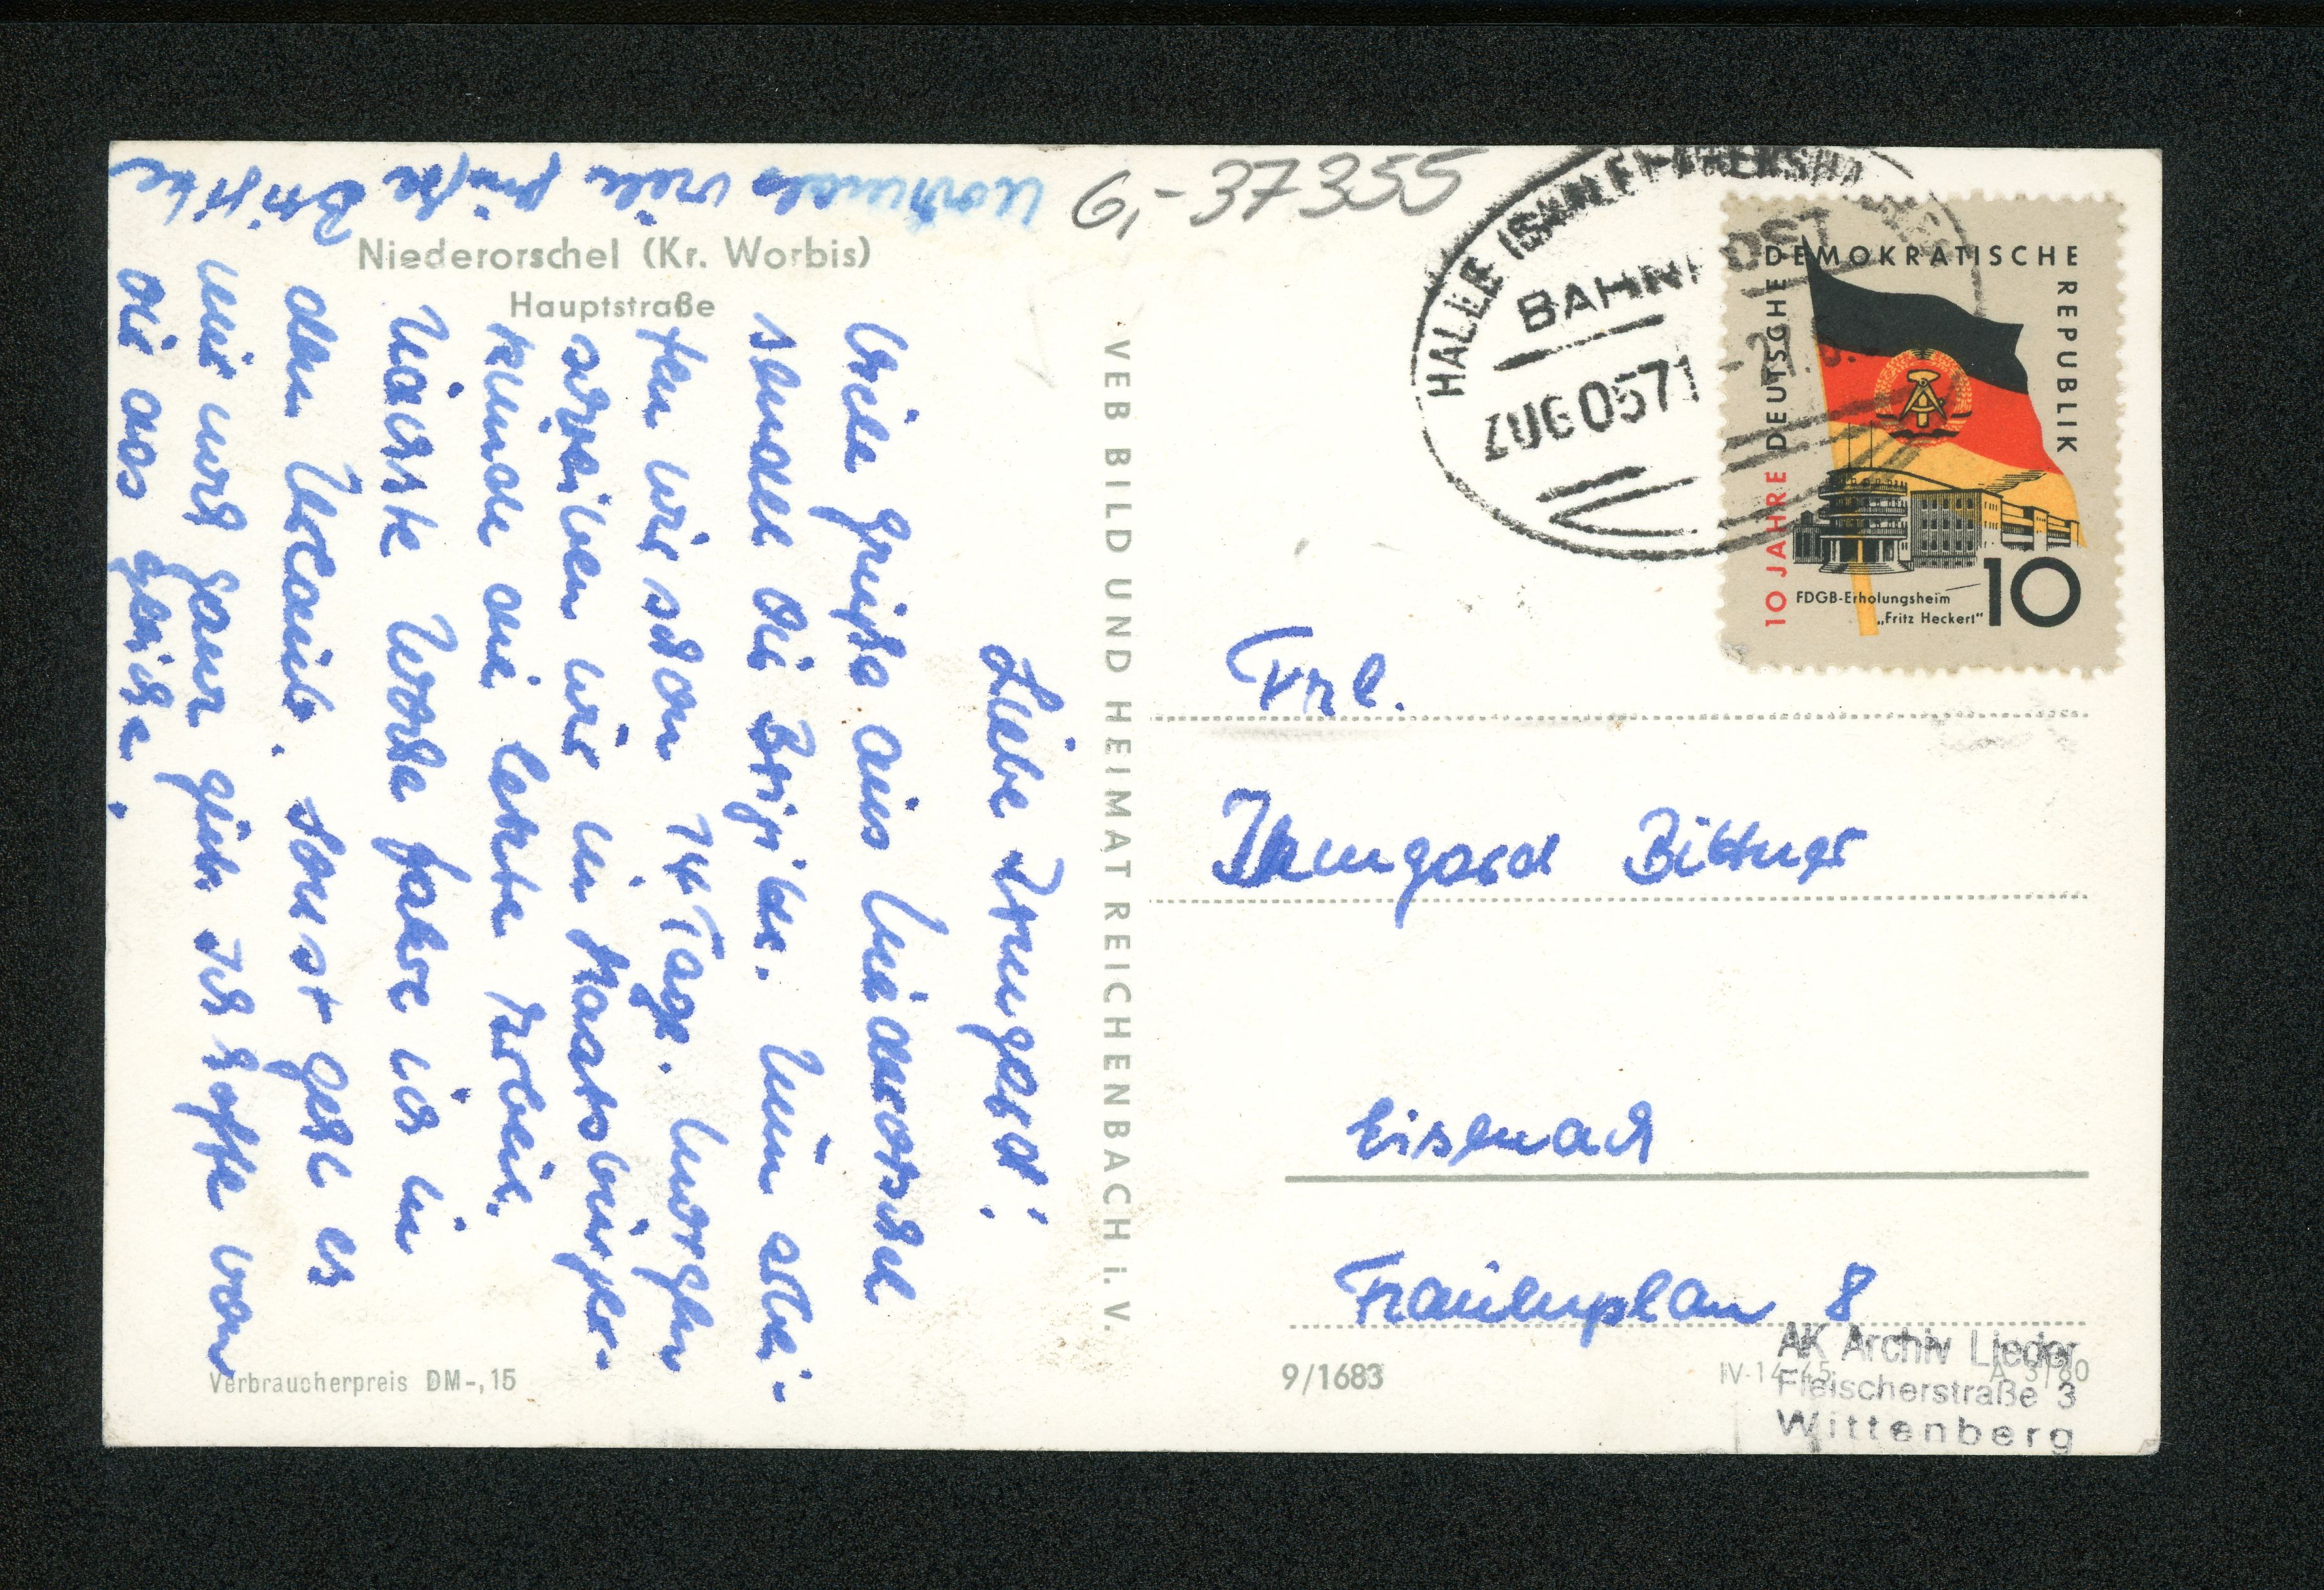 Niederorschel (Kr. Worbis)
Hauptstraße
Liebe Irmgard!
Viele Grüße aus Niederorschel
sendet Dir Brigitte. Nun arbei-
ten wir schon 14 Tage. Morgen
schreiben wir in Staatsbürger-
kunde eine letzte Arbeit.
Nächste Woche fahre ich in
den Urlaub. Sonst geht es
mir noch ganz gut. Ich hoffe von
Dir das gleiche.
Nochmals viele Grüße Brigitte
VEB BILD UND HEIMAT REICHENBACH i. V.
Verbraucherpreis DM-,15
6,- 37355
HALLE (SAALE)
BAHNPOST
ZUG 0571
DEUTSCHE DEMOKRATISCHE REPUBLIK
10 JAHRE
FDGB-Erholungsheim
„Fritz Heckert"
10
Frl.
Irmgard Bittner
Eisenach
Frauenplan 8
9/1683
IV-14-45 A 3/60
AK Archiv Lieder
Fleischerstraße 3
Wittenberg